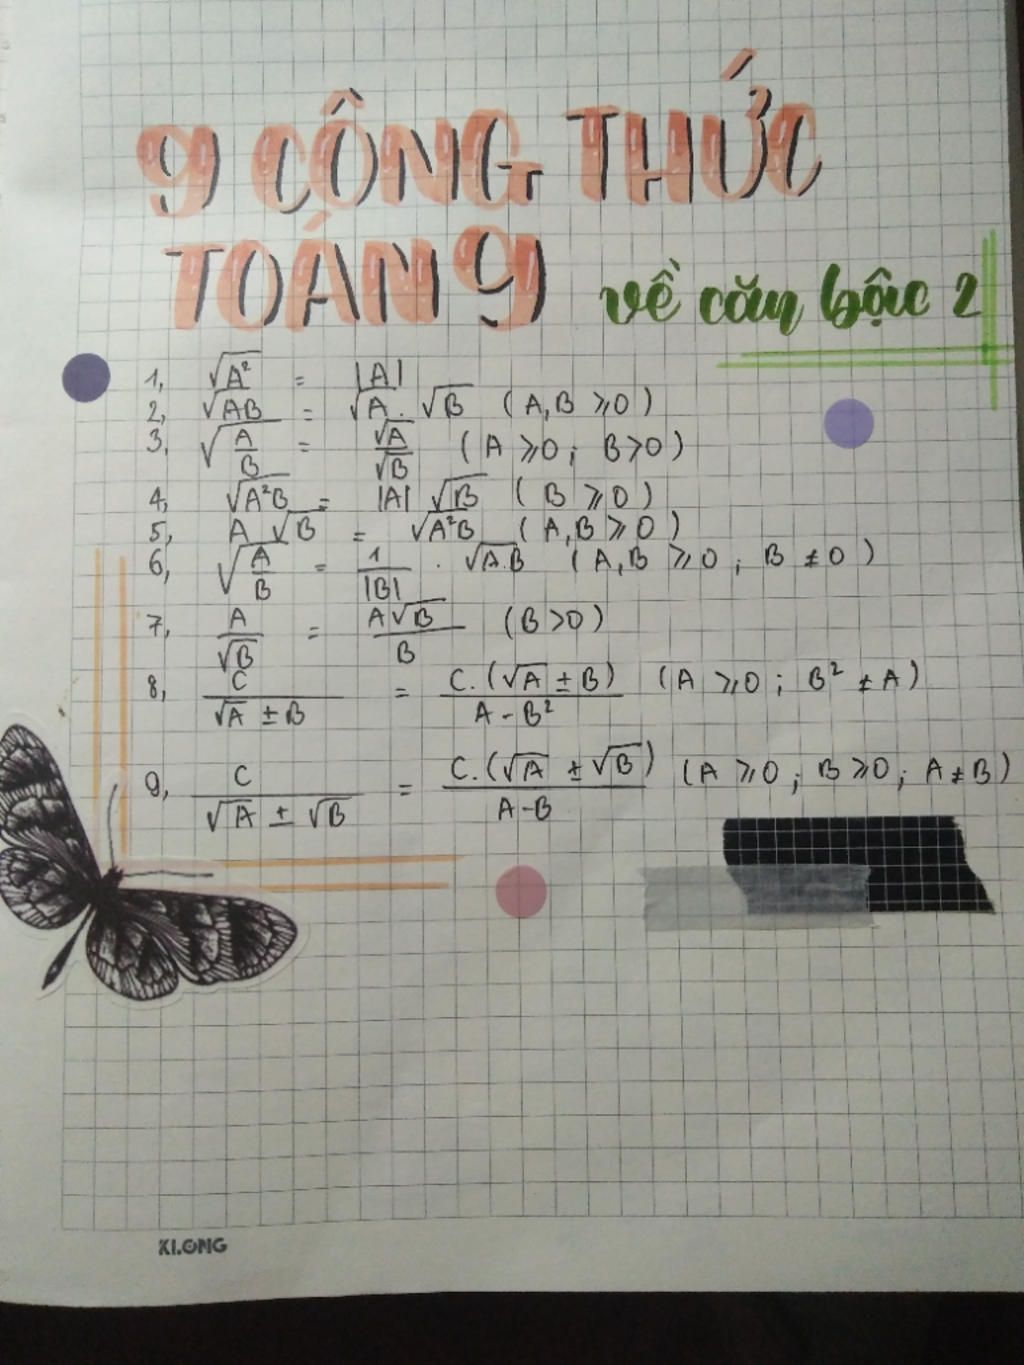 9 CÔNG THỨC
TOÁN 9 về căn bậc 2
1, √A² = |A|
2, √AB = √A . √B (A, B ⩾ 0)
3, √(A/B) = √A/√B (A ⩾ 0 ; B > 0)
4, √A²B = |A| √B (B ⩾ 0)
5, A √B = √A²B (A, B ⩾ 0)
6, √(A/B) = 1/|B| . √A.B (A, B ⩾ 0 ; B ≠ 0)
7, A/√B = A√B/B (B > 0)
8, C/(√A ± B) = C.(√A ± B)/(A - B²) (A ⩾ 0 ; B² ≠ A)
9, C/(√A ± √B) = C.(√A ± √B)/(A - B) (A ⩾ 0 ; B ⩾ 0 ; A ≠ B)
KLONG